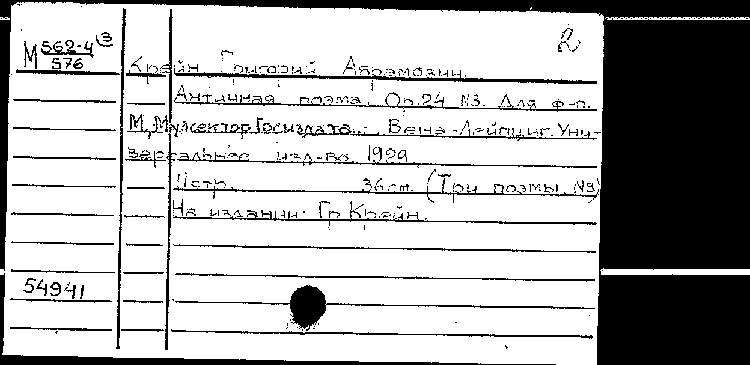 2
М 562-4 (3
576
Крейн Григорий Абрамович.
Античная поэма. Op.24 №3. Для ф-п.
М., Музсектор Госиздата.; Вена-Лейпциг. Уни-
версальное изд-во. 1929.
11 стр. 36 см. (Три поэмы. №3)
На издании: Гр. Крейн.
54941